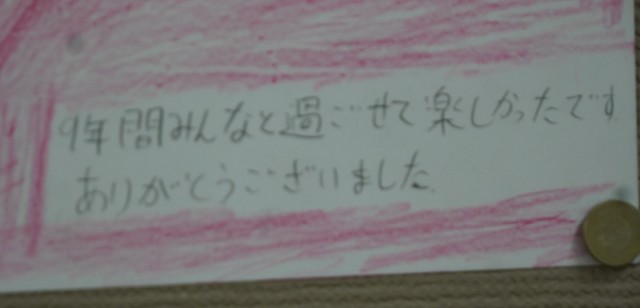 9年間みんなと過ごせて楽しかったです
ありがとうございました